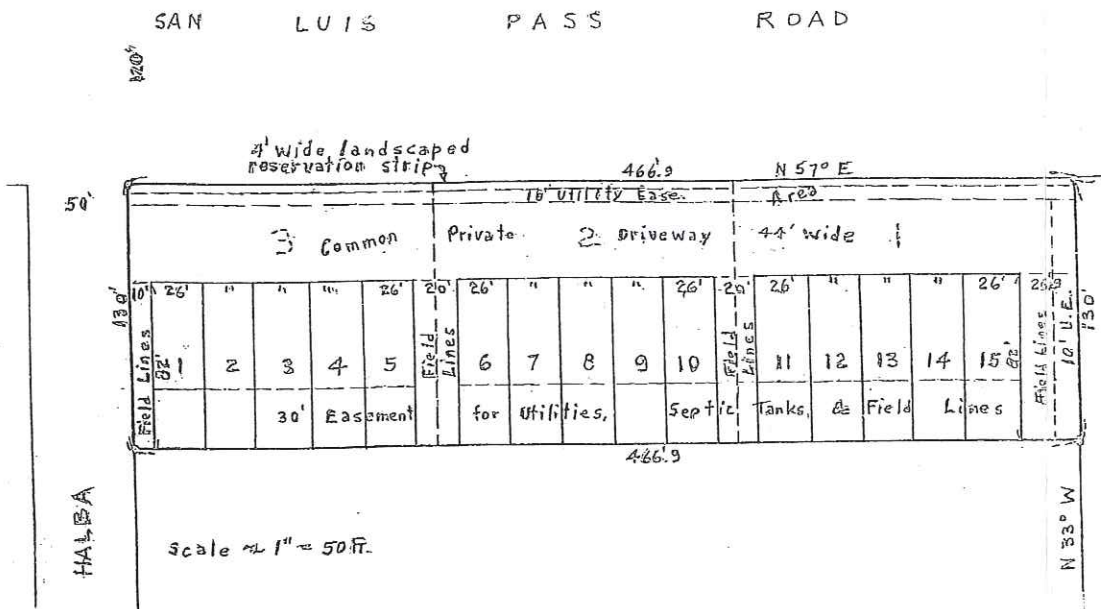 SAN LUIS PASS ROAD
120'
4' wide landscaped
reservation strip
466.9 N 57° E
50'
16' Utility Ease. Area
3 Common Private 2 Driveway 44' wide 1
10' 26' " " " 26' 20' 26' " " " 26' 20' 26' " " " 26' 26.9
130'
Field Lines
82'
1 2 3 4 5
Field Lines
6 7 8 9 10
Field Lines
11 12 13 14 15
82'
Field Lines
10' U.E.
130'
30' Easement for Utilities, Septic Tanks, & Field Lines
466.9
HALBA
Scale ~ 1" = 50 ft.
N 33° W